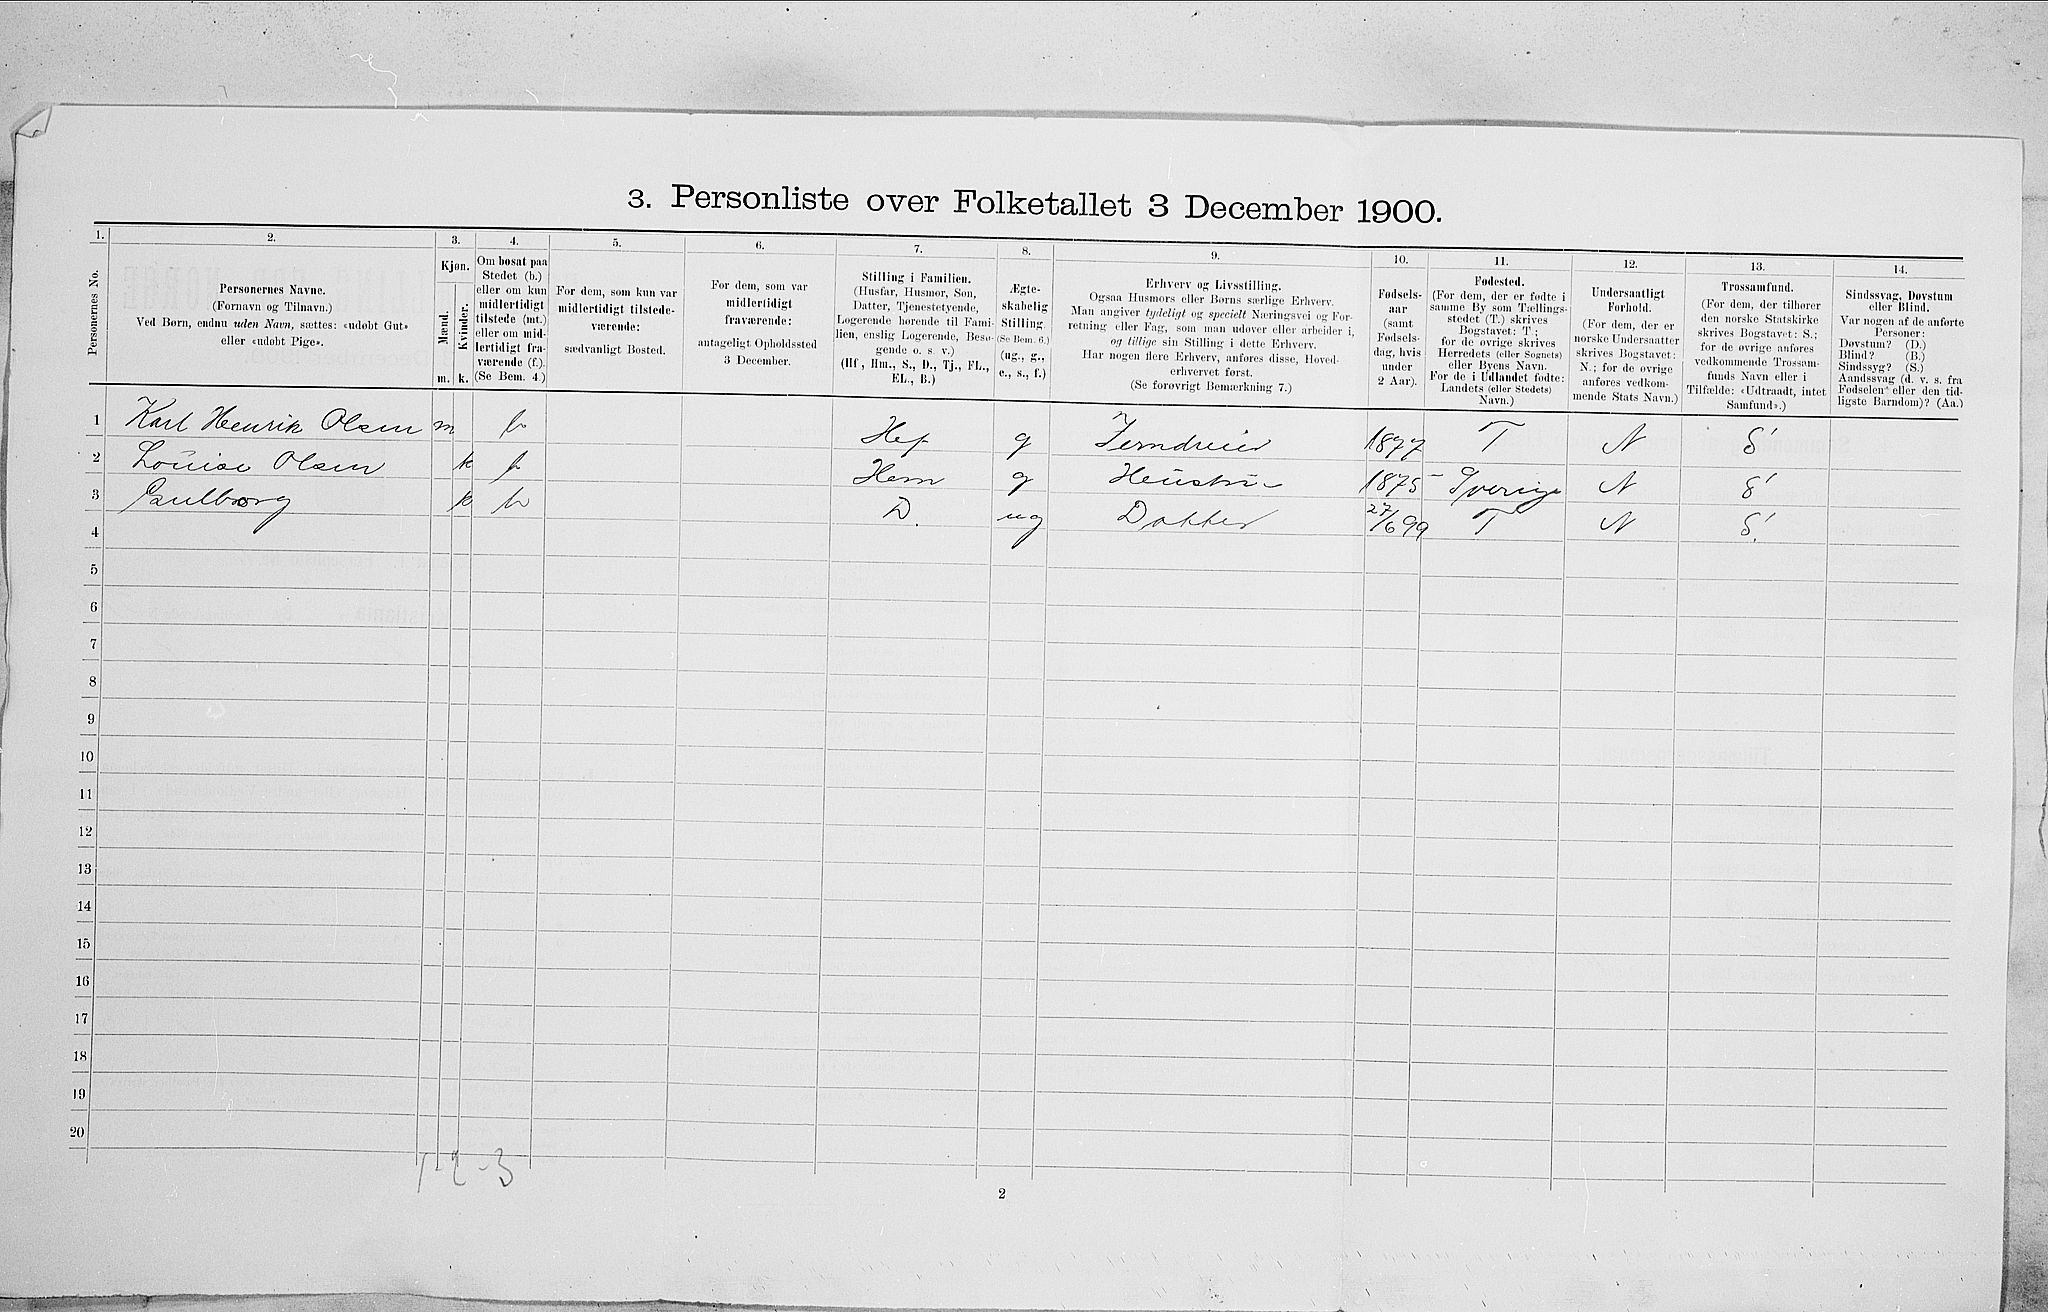 3. Personliste over Folketallet 3 December 1900.
1. 2. 3. 4. 5. 6. 7. 8. 9. 10. 11. 12. 13. 14.
Personernes No.
Personernes Navne.
(Fornavn og Tilnavn.)
Ved Børn, endnu uden Navn, sættes: «udøbt Gut»
eller «udøbt Pige».
Kjøn.
Mænd.
Kvinder.
m. k.
Om bosat paa
Stedet (b.)
eller om kun
midlertidigt
tilstede (mt.)
eller om mid-
lertidigt fra-
værende (f.).
(Se Bem. 4.)
For dem, som kun var
midlertidigt tilstede-
værende:
sædvanligt Bosted.
For dem, som var
midlertidigt
fraværende:
antageligt Opholdssted
3 December.
Stilling i Familien.
(Husfar, Husmor, Søn,
Datter, Tjenestetyende,
Logerende hørende til Fami-
lien, enslig Logerende, Besø-
gende o. s. v.)
(Hf, Hm., S., D., Tj., FL.,
EL., B.)
Ægte-
skabelig
Stilling.
(Se Bem. 6.)
(ug., g.,
e., s., f.)
Erhverv og Livsstilling.
Ogsaa Husmors eller Børns særlige Erhverv.
Man angiver tydeligt og specielt Næringsvei og For-
retning eller Fag, som man udøver eller arbeider i,
og tillige sin Stilling i dette Erhverv.
Har nogen flere Erhverv, anføres disse, Hoved-
erhvervet først.
(Se forøvrigt Bemærkning 7.)
Fødsels-
aar
(samt
Fødsels-
dag, hvis
under
2 Aar).
Fødested.
(For dem, der er fødte i
samme By som Tællings-
stedet (T.) skrives
Bogstavet: T.;
for de øvrige skrives
Herredets (eller Sognets)
eller Byens Navn.
For de i Udlandet fødte:
Landets (eller Stedets)
Navn.)
Undersaatligt
Forhold.
(For dem, der er
norske Undersaatter
skrives Bogstavet:
N.; for de øvrige
anføres vedkom-
mende Stats Navn.)
Trossamfund.
(For dem, der tilhører
den norske Statskirke
skrives Bogstavet: S.;
for de øvrige anføres
vedkommende Trossam-
funds Navn eller i
Tilfælde: «Udtraadt, intet
Samfund».)
Sindssvag, Døvstum
eller Blind.
Var nogen af de anførte
Personer:
Døvstum? (D.)
Blind? (B.)
Sindssyg? (S.)
Aandssvag (d. v. s. fra
Fødselen eller den tid-
ligste Barndom)? (Aa.)
1 Karl Henrik Olsen m b Hf g Jerndreier 1877 T N S
2 Louise Olsen k b Hm g Hustru 1875 Sverige N S
3 Gulborg k b D. ug Datter 27/6 99 T N S.
4
5
6
7
8
9
10
11
12
13
14
15
16
17
18
19
20
1-2-3
2